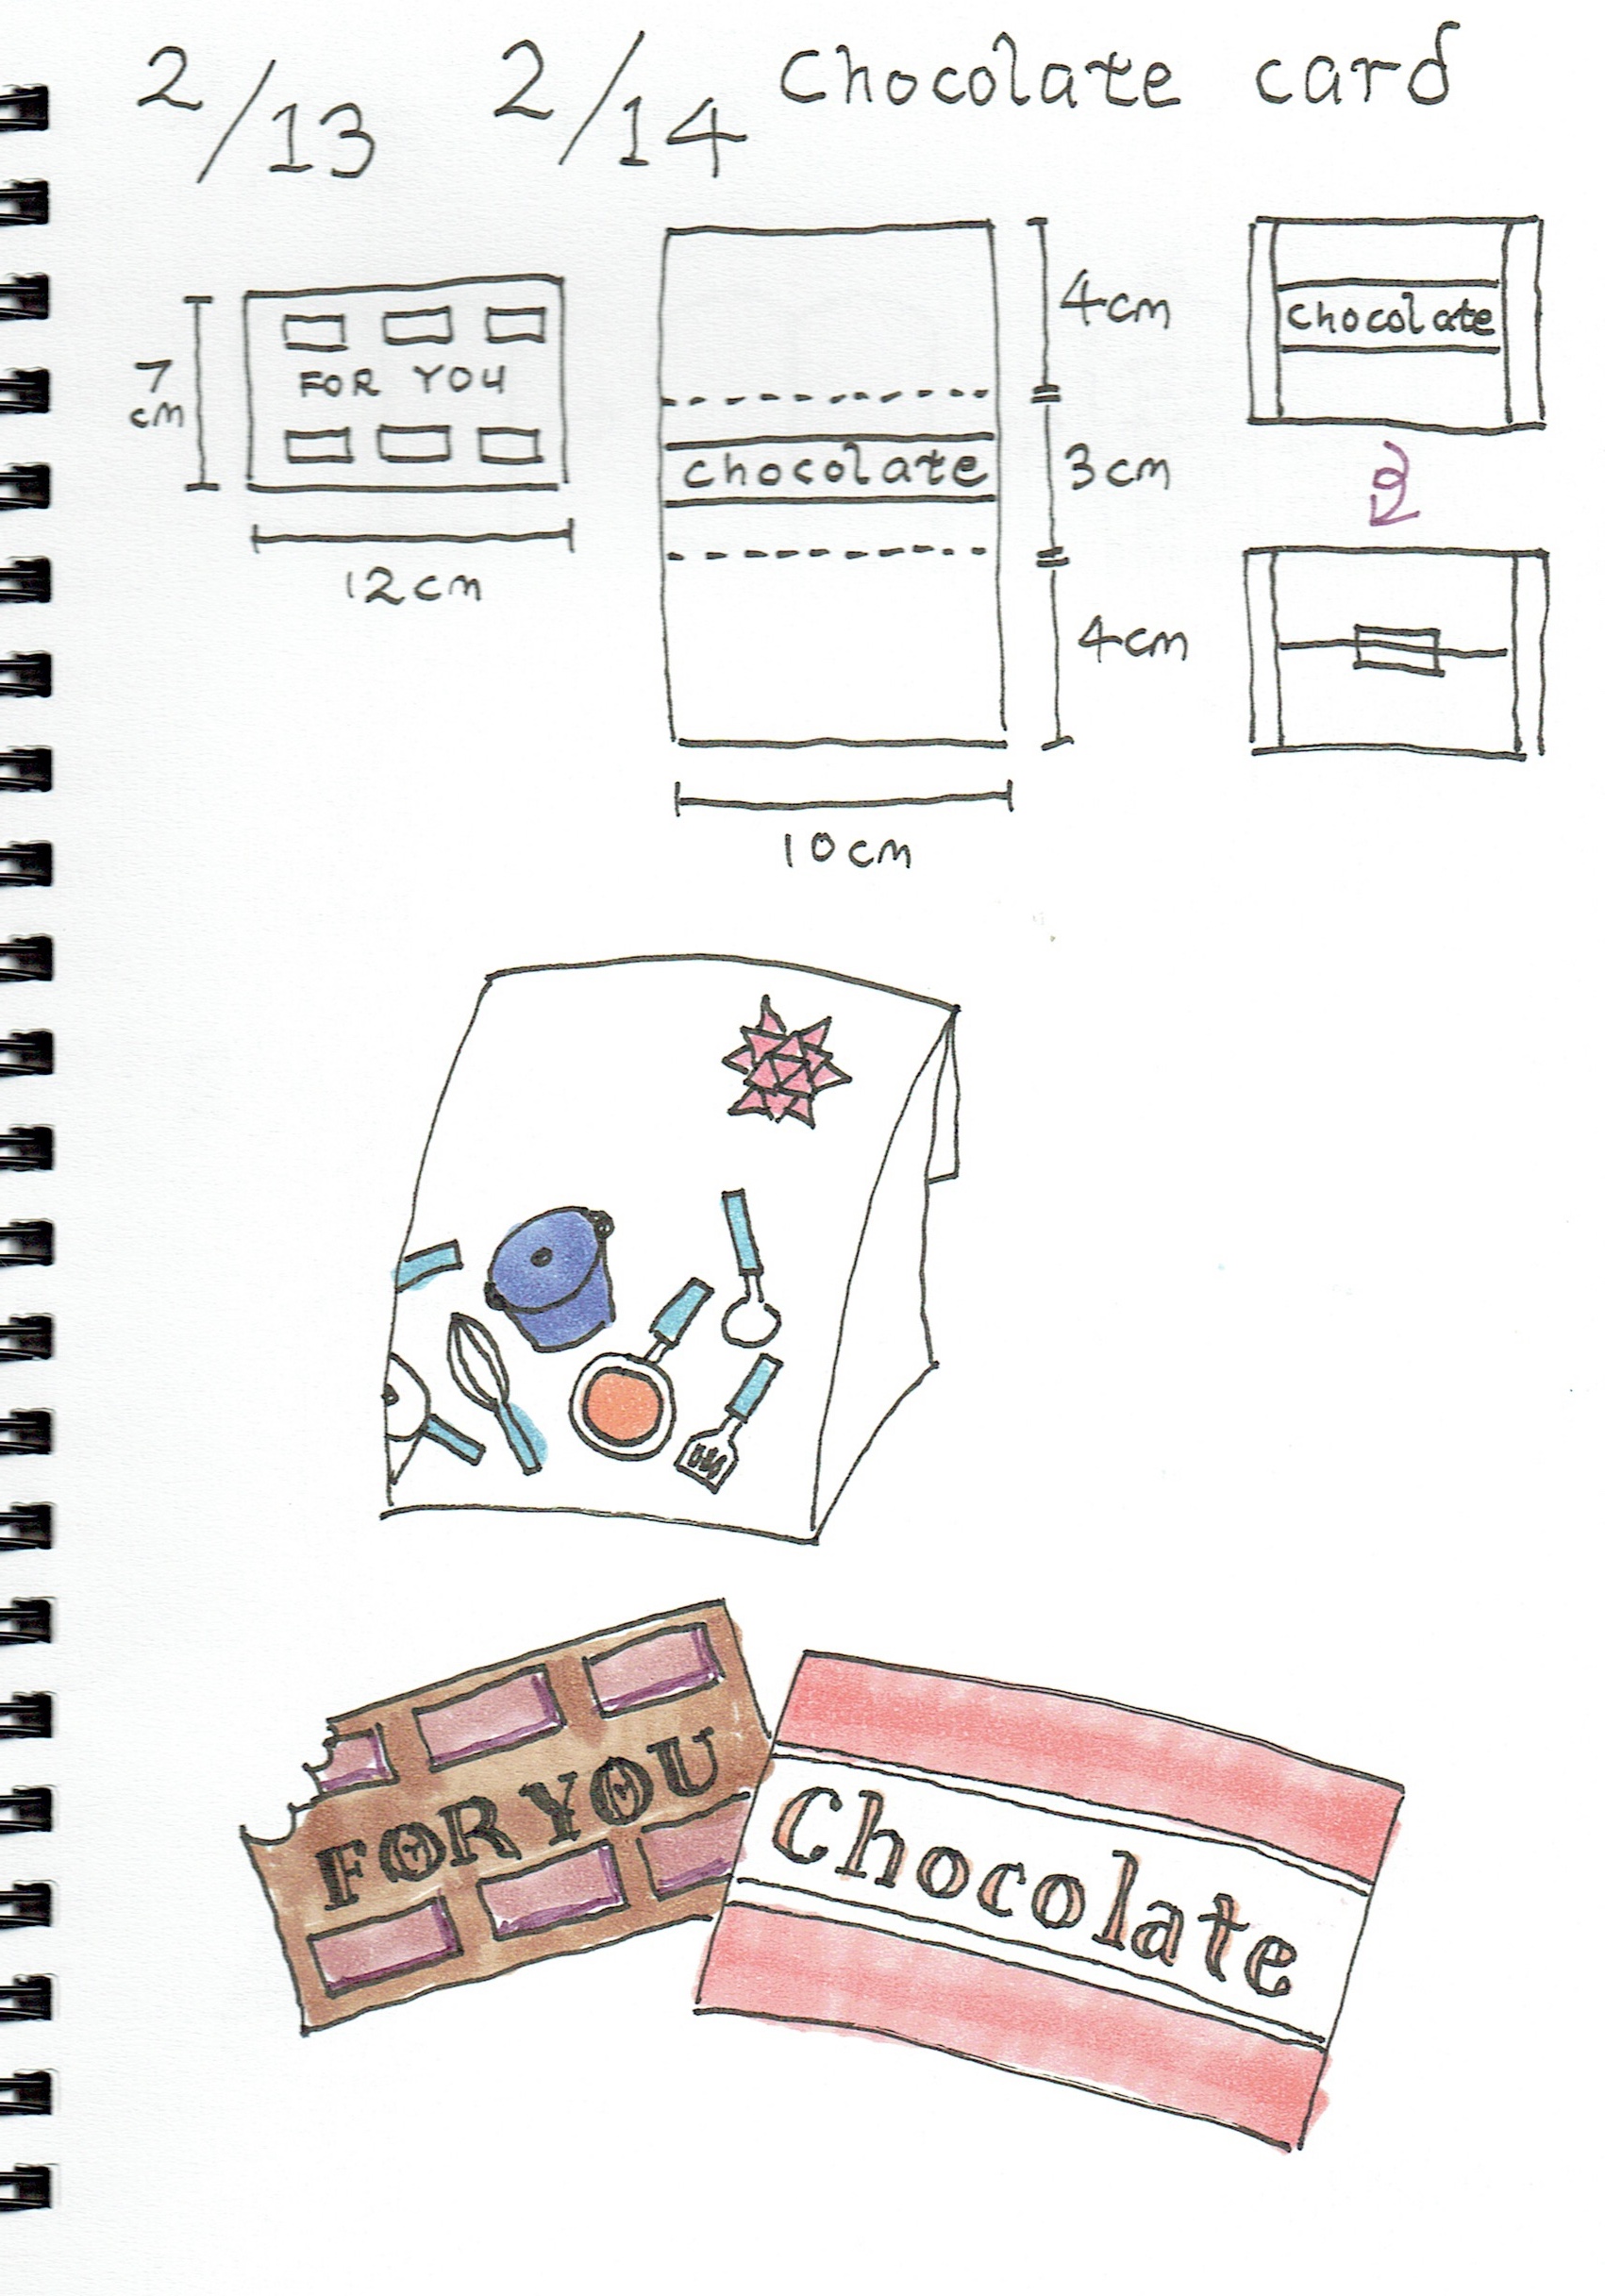 2/13 2/14 Chocolate card
7
cm
FOR YOU
12cm
chocolate
4cm
3cm
4cm
10cm
chocolate
FOR YOU
Chocolate